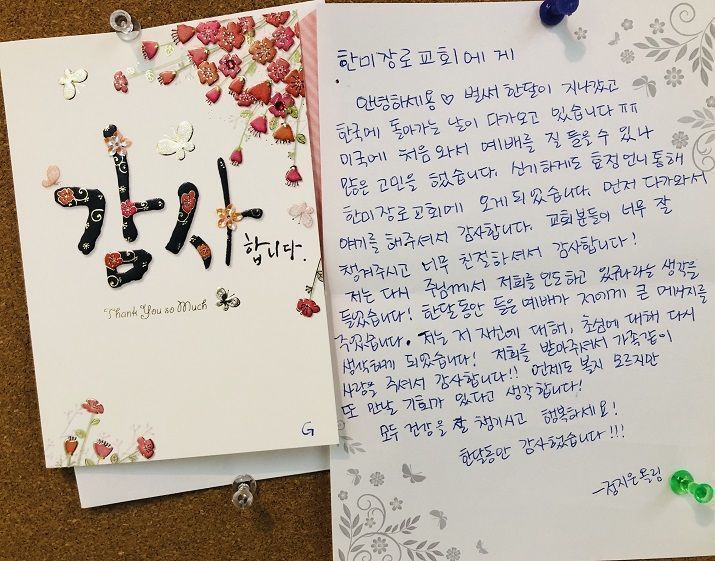 감사
합니다.
Thank You so Much
G
한미장로교회에게
안녕하세용♡ 벌써 한달이 지나갔고
한국에 돌아가는 날이 다가오고 있습니다 ㅠㅠ
미국에 처음 와서 예배를 잘 들을 수 있나
많은 고민을 했습니다. 신기하게도 효진언니 통해
한미장로교회에 오게 되었습니다. 먼저 다가와서
얘기를 해주셔서 감사합니다. 교회분들이 너무 잘
챙겨주시고 너무 친절하셔서 감사합니다!
저는 다시 주님께서 저희를 인도하고 있구나라는 생각을
들었습니다! 한달동안 들은 예배가 저에게 큰 메세지를
주었습니다. 저는 저 자신에 대해, 초심에 대해 다시
생각하게 되었습니다! 저희를 받아주셔서 가족같이
사랑을 주셔서 감사합니다!! 언제도 볼지 모르지만
또 만날 기회가 있다고 생각합니다!
모두 건강을 잘 챙기시고 행복하세요!
한달동안 감사했습니다!!!
-정지은올림